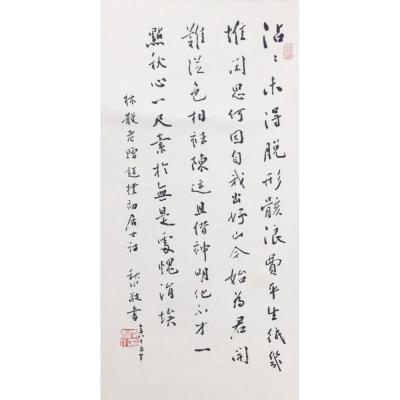 沾沾未得脱形骸浪費平生紙幾
堆閑思何因自我出好山今始為君開
難從色相祛陳迹且借神明化不才一
點秋心一尺素於無是處愧涓埃
林散老贈趙樸初居士詩 秋川敬書